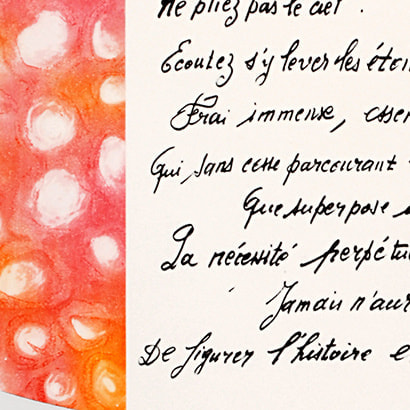 Ne pliez pas le ciel.
Écoutez s'y lever les étoi
Frai immense, essen
Qui, sans cesse parcourant
Que superpose
La nécessité perpétu
Jamais n'aur
De figurer l'histoire e